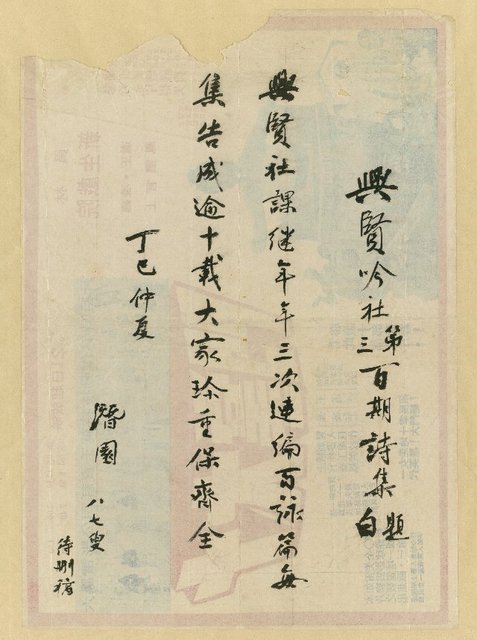 興賢吟社第三百期詩集題白
興賢社課継年年三次連編百詠篇每
集告成逾十載大家珍重保齊全
丁巳仲夏
潛園八七叟
待刪稿